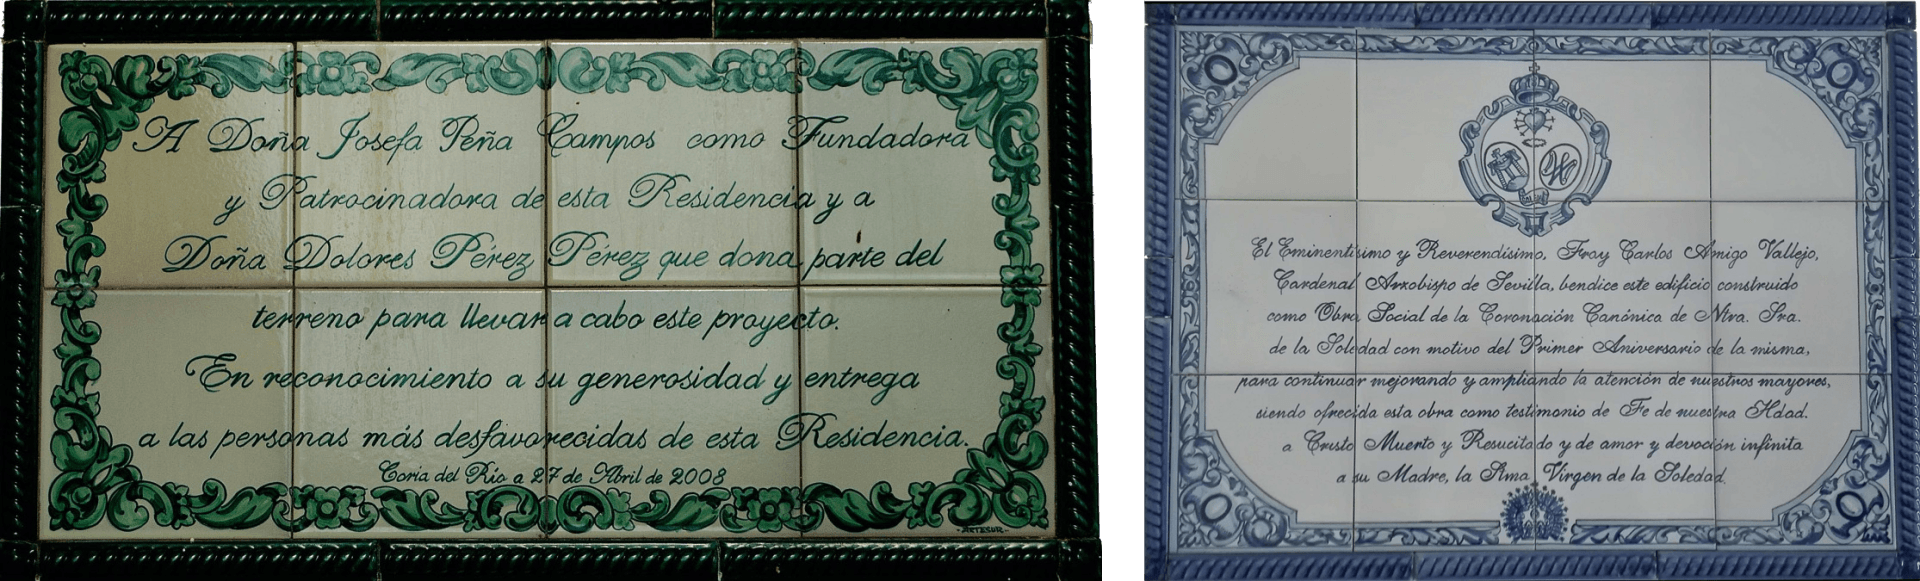 A Doña Josefa Peña Campos como Fundadora
y Patrocinadora de esta Residencia y a
Doña Dolores Pérez Pérez que dona parte del
terreno para llevar a cabo este proyecto.
En reconocimiento a su generosidad y entrega
a las personas más desfavorecidas de esta Residencia.
Coria del Río a 27 de Abril de 2008
-ARTESUR-
El Eminentísimo y Reverendísimo, Fray Carlos Amigo Vallejo,
Cardenal Arzobispo de Sevilla, bendice este edificio construido
como Obra Social de la Coronación Canónica de Ntra. Sra.
de la Soledad con motivo del Primer Aniversario de la misma,
para continuar mejorando y ampliando la atención de nuestros mayores,
siendo ofrecida esta obra como testimonio de Fe de nuestra Hdad.
a Cristo Muerto y Resucitado y de amor y devoción infinita
a su Madre, la Stma. Virgen de la Soledad.